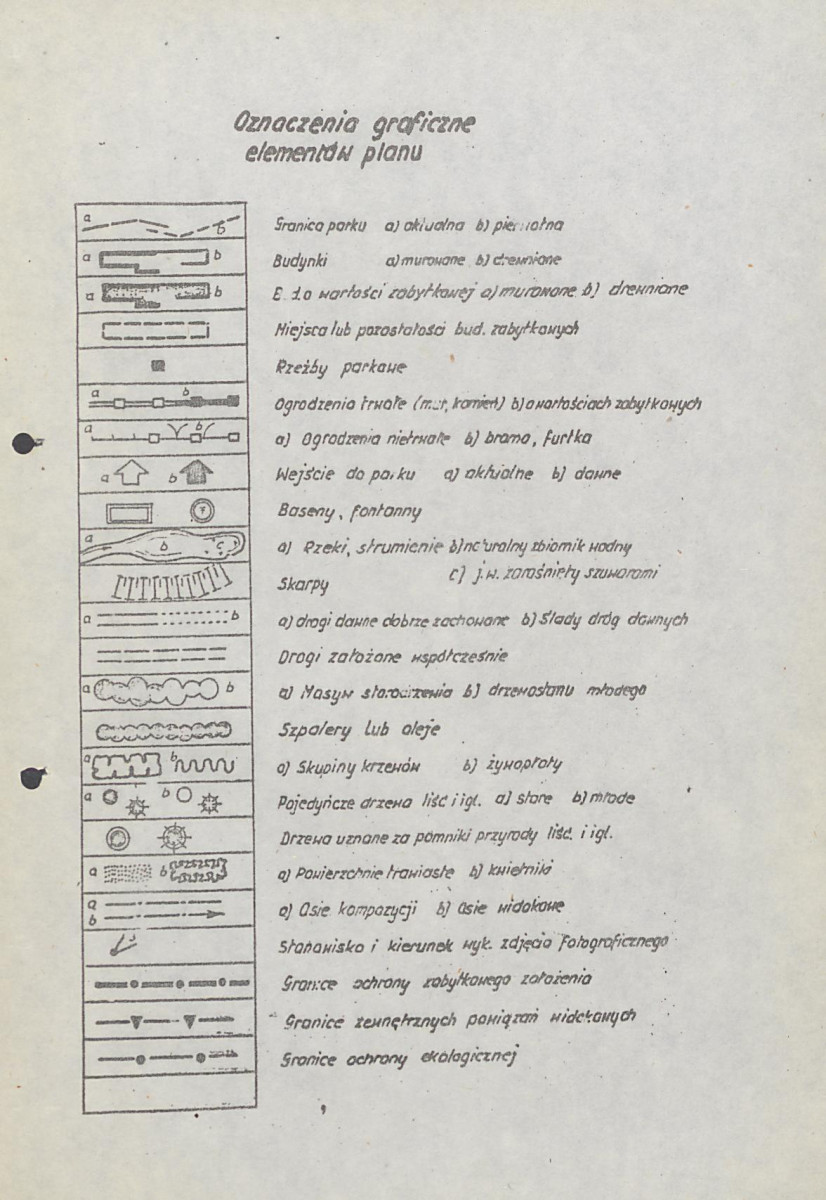 Oznaczenia graficzne
elementów planu
a b Granica parku a) aktualna b) pierwotna
a b Budynki a) murowane b) drewniane
a b B. d.o wartości zabytkowej a) murowane b) drewniane
Miejsca lub pozostałości bud. zabytkowych
Rzeźby parkowe
a b Ogrodzenia trwałe (mur, kamień) b) o wartościach zabytkowych
a b a) Ogrodzenia nietrwałe b) brama, furtka
a b Wejście do parku a) aktualne b) dawne
Baseny, fontanny
a b c a) Rzeki, strumienie b) naturalny zbiornik wodny
c) j.w. zarośnięty szuwarami
Skarpy
a b a) drogi dawne dobrze zachowane b) Ślady dróg dawnych
Drogi założone współcześnie
a b a) Masyw starodrzewia b) drzewostanu młodego
Szpalery lub aleje
a b a) Skupiny krzewów b) żywopłoty
a b Pojedyńcze drzewa liść i igl. a) stare b) młode
Drzewa uznane za pomniki przyrody liść. i igl.
a b a) Powierzchnie trawiaste b) kwietniki
a b a) Osie kompozycji b) Osie widokowe
Stanowisko i kierunek wyk. zdjęcia fotograficznego
Granice ochrony zabytkowego założenia
Granice zewnętrznych powiązań widokowych
Granice ochrony ekologicznej